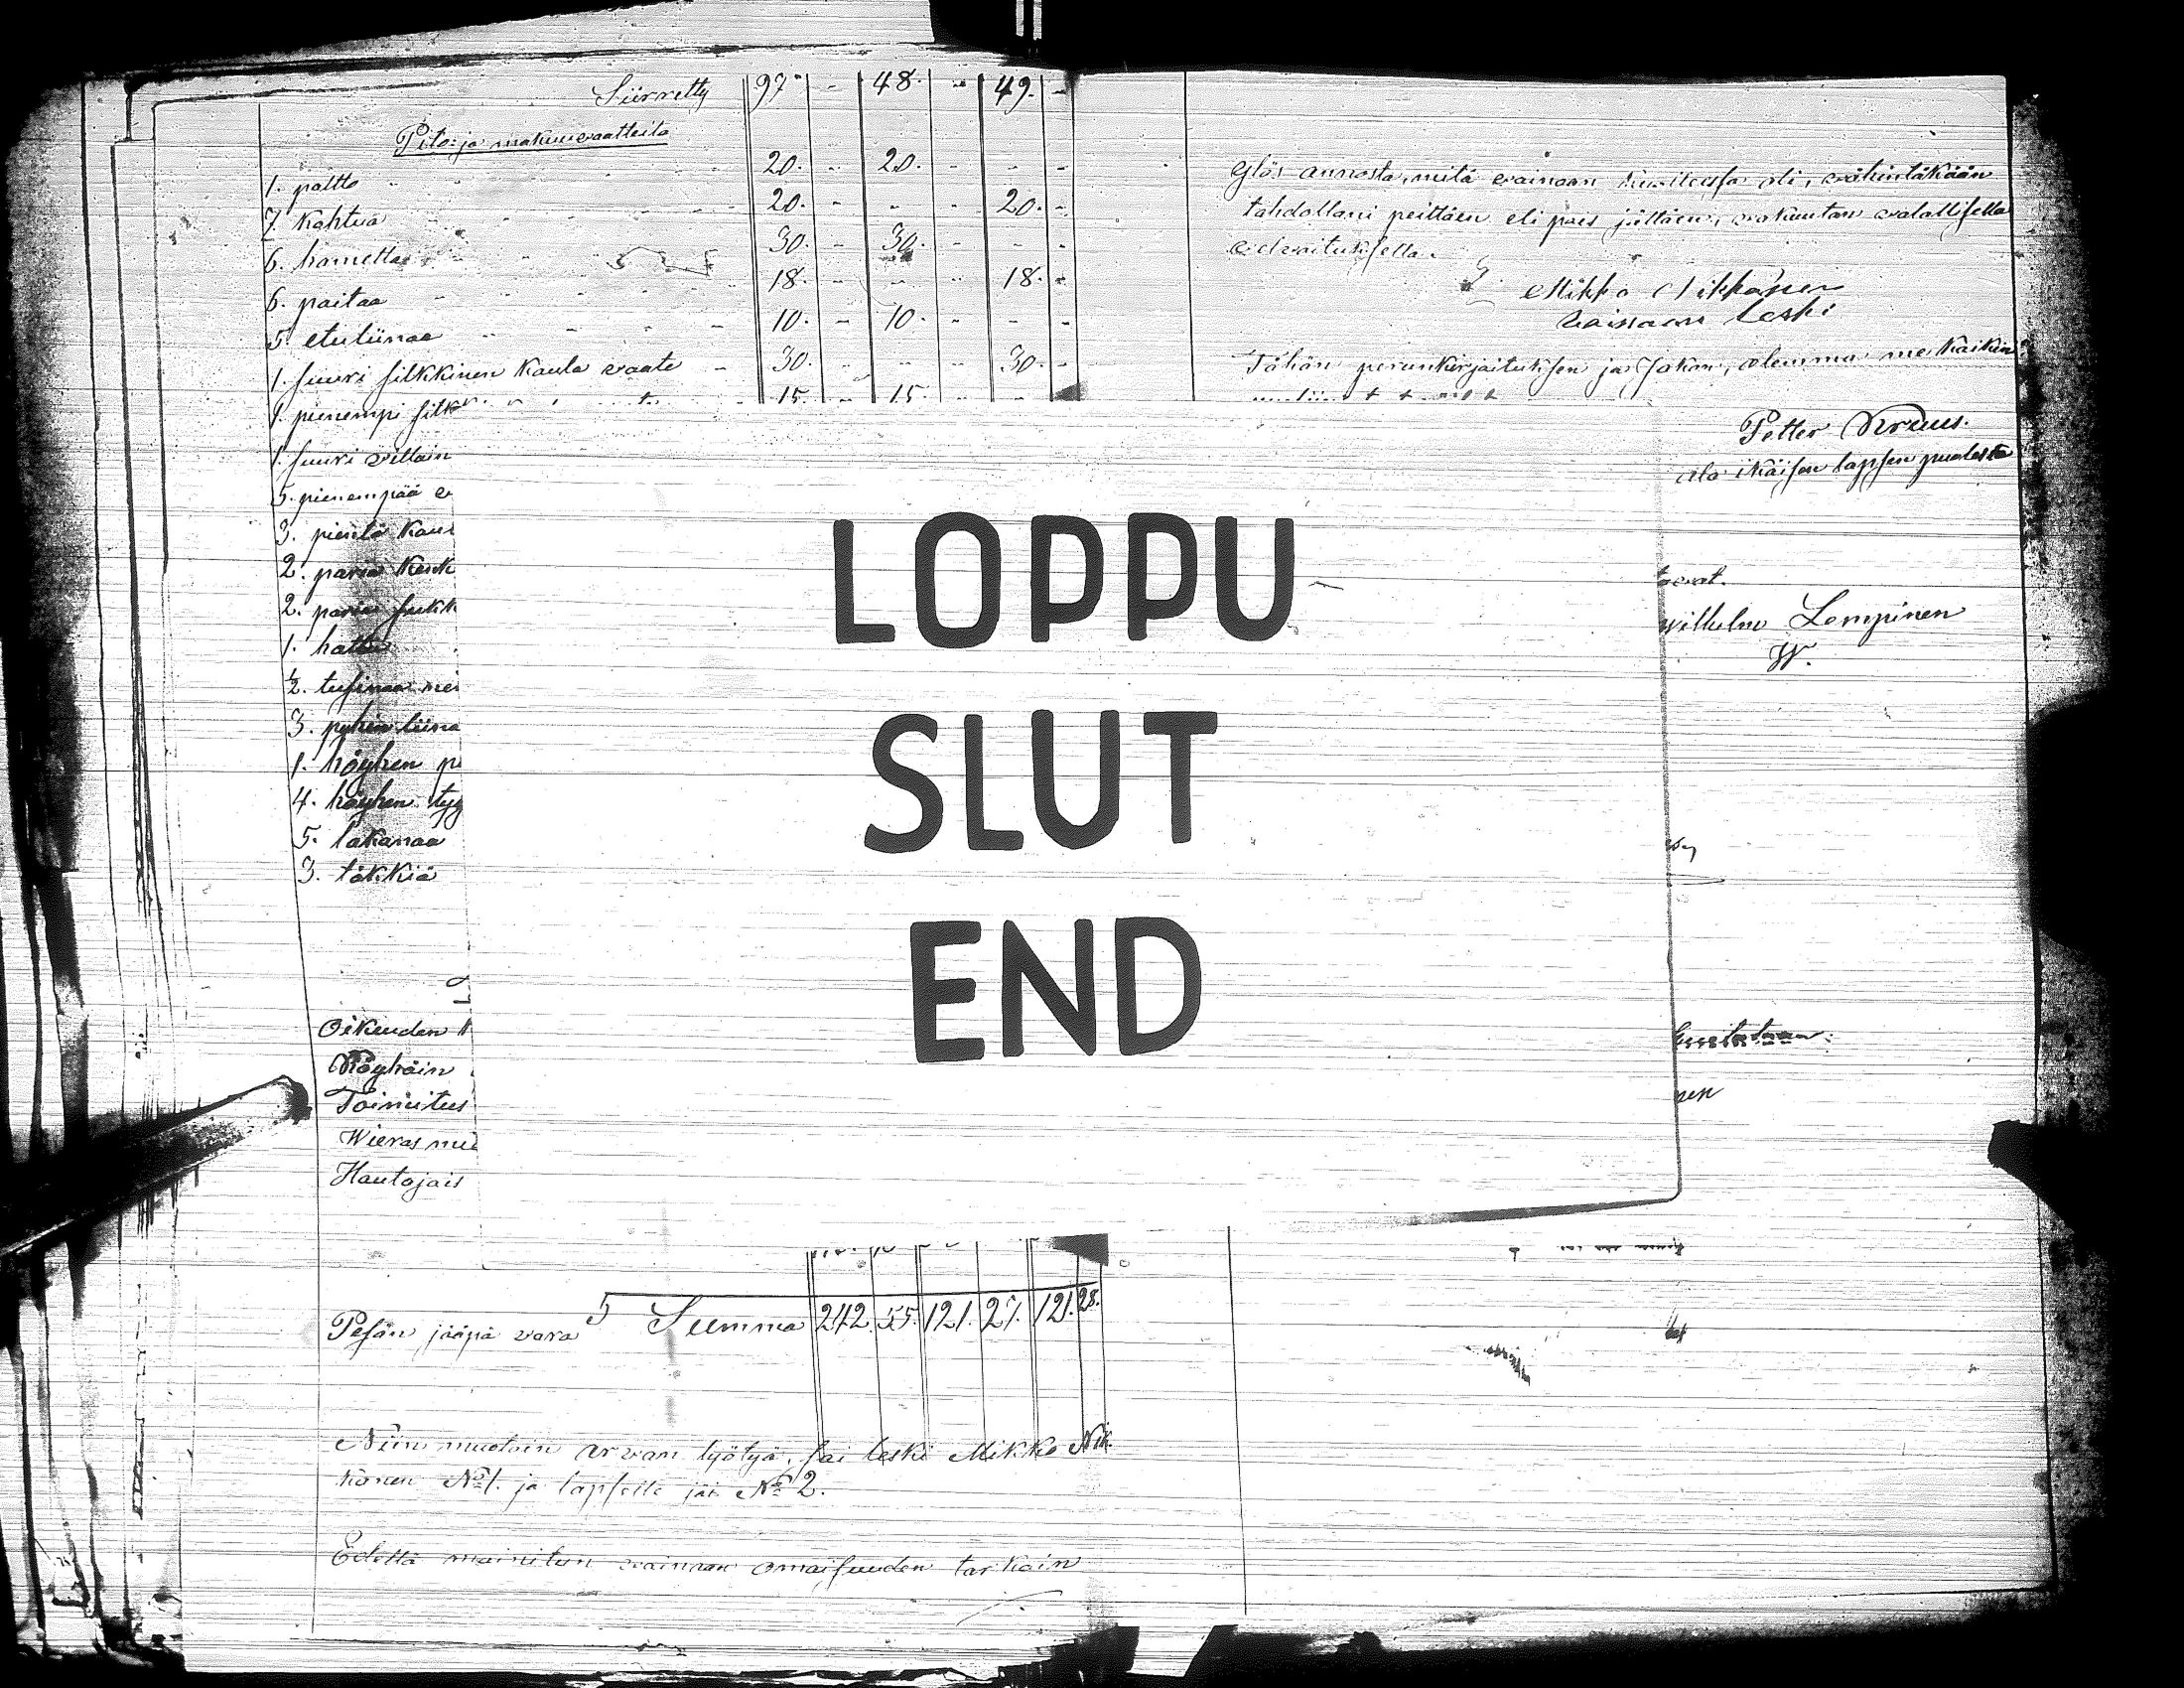 Siirretty 97. - 48. - 49. -
Pito- ja makuuvaatteita
1. paltto 20. - 20. - - -
7. kahtua 20. - - - 20. -
6. hametta 30. - 30. - - -
6. paitaa 18. - - - 18. -
5 etuliinaa 10. - 10. - - -
1. suuri silkkinen kaula vaate 30. - - - 30. -
1. pienempi silk 15. - 15. - -
1. suuri villain
5. pienempää
3. pientä kau
2. paria kenk
2. paria sukk
1. hattu
½ tusinaa
3. pyhin liina
1. höyhen p
4. höyhen tyy
5. lakanaa
3. täkkiä
Oikeuden
Köyhäin
Toimitus
Wieras mie
Hautajais
Pesän jääpä vara Summa 242. 55. 121. 27. 121. 28.
Niin muotoin arvan lyötyä, sai leski Mikko Nik-
könen No 1. ja lapselle jäi No 2.
Edellä mainitun vainaan omaisuuden tarkoin
LOPPU
SLUT
END
Ylös annosta, mitä vainaan oli, vähintäkään
tahdollani peittäen eli pois jättäen, vakuutan valallisella
velvoituksella.
Mikko Nikkonen
vainaan leski
Tähän perunkirjoituksen ja jakon, olemma me kaikin
Petter Kruus.
ala ikäisen lapsen puolesta
wilhelm Lempinen
W.
nen